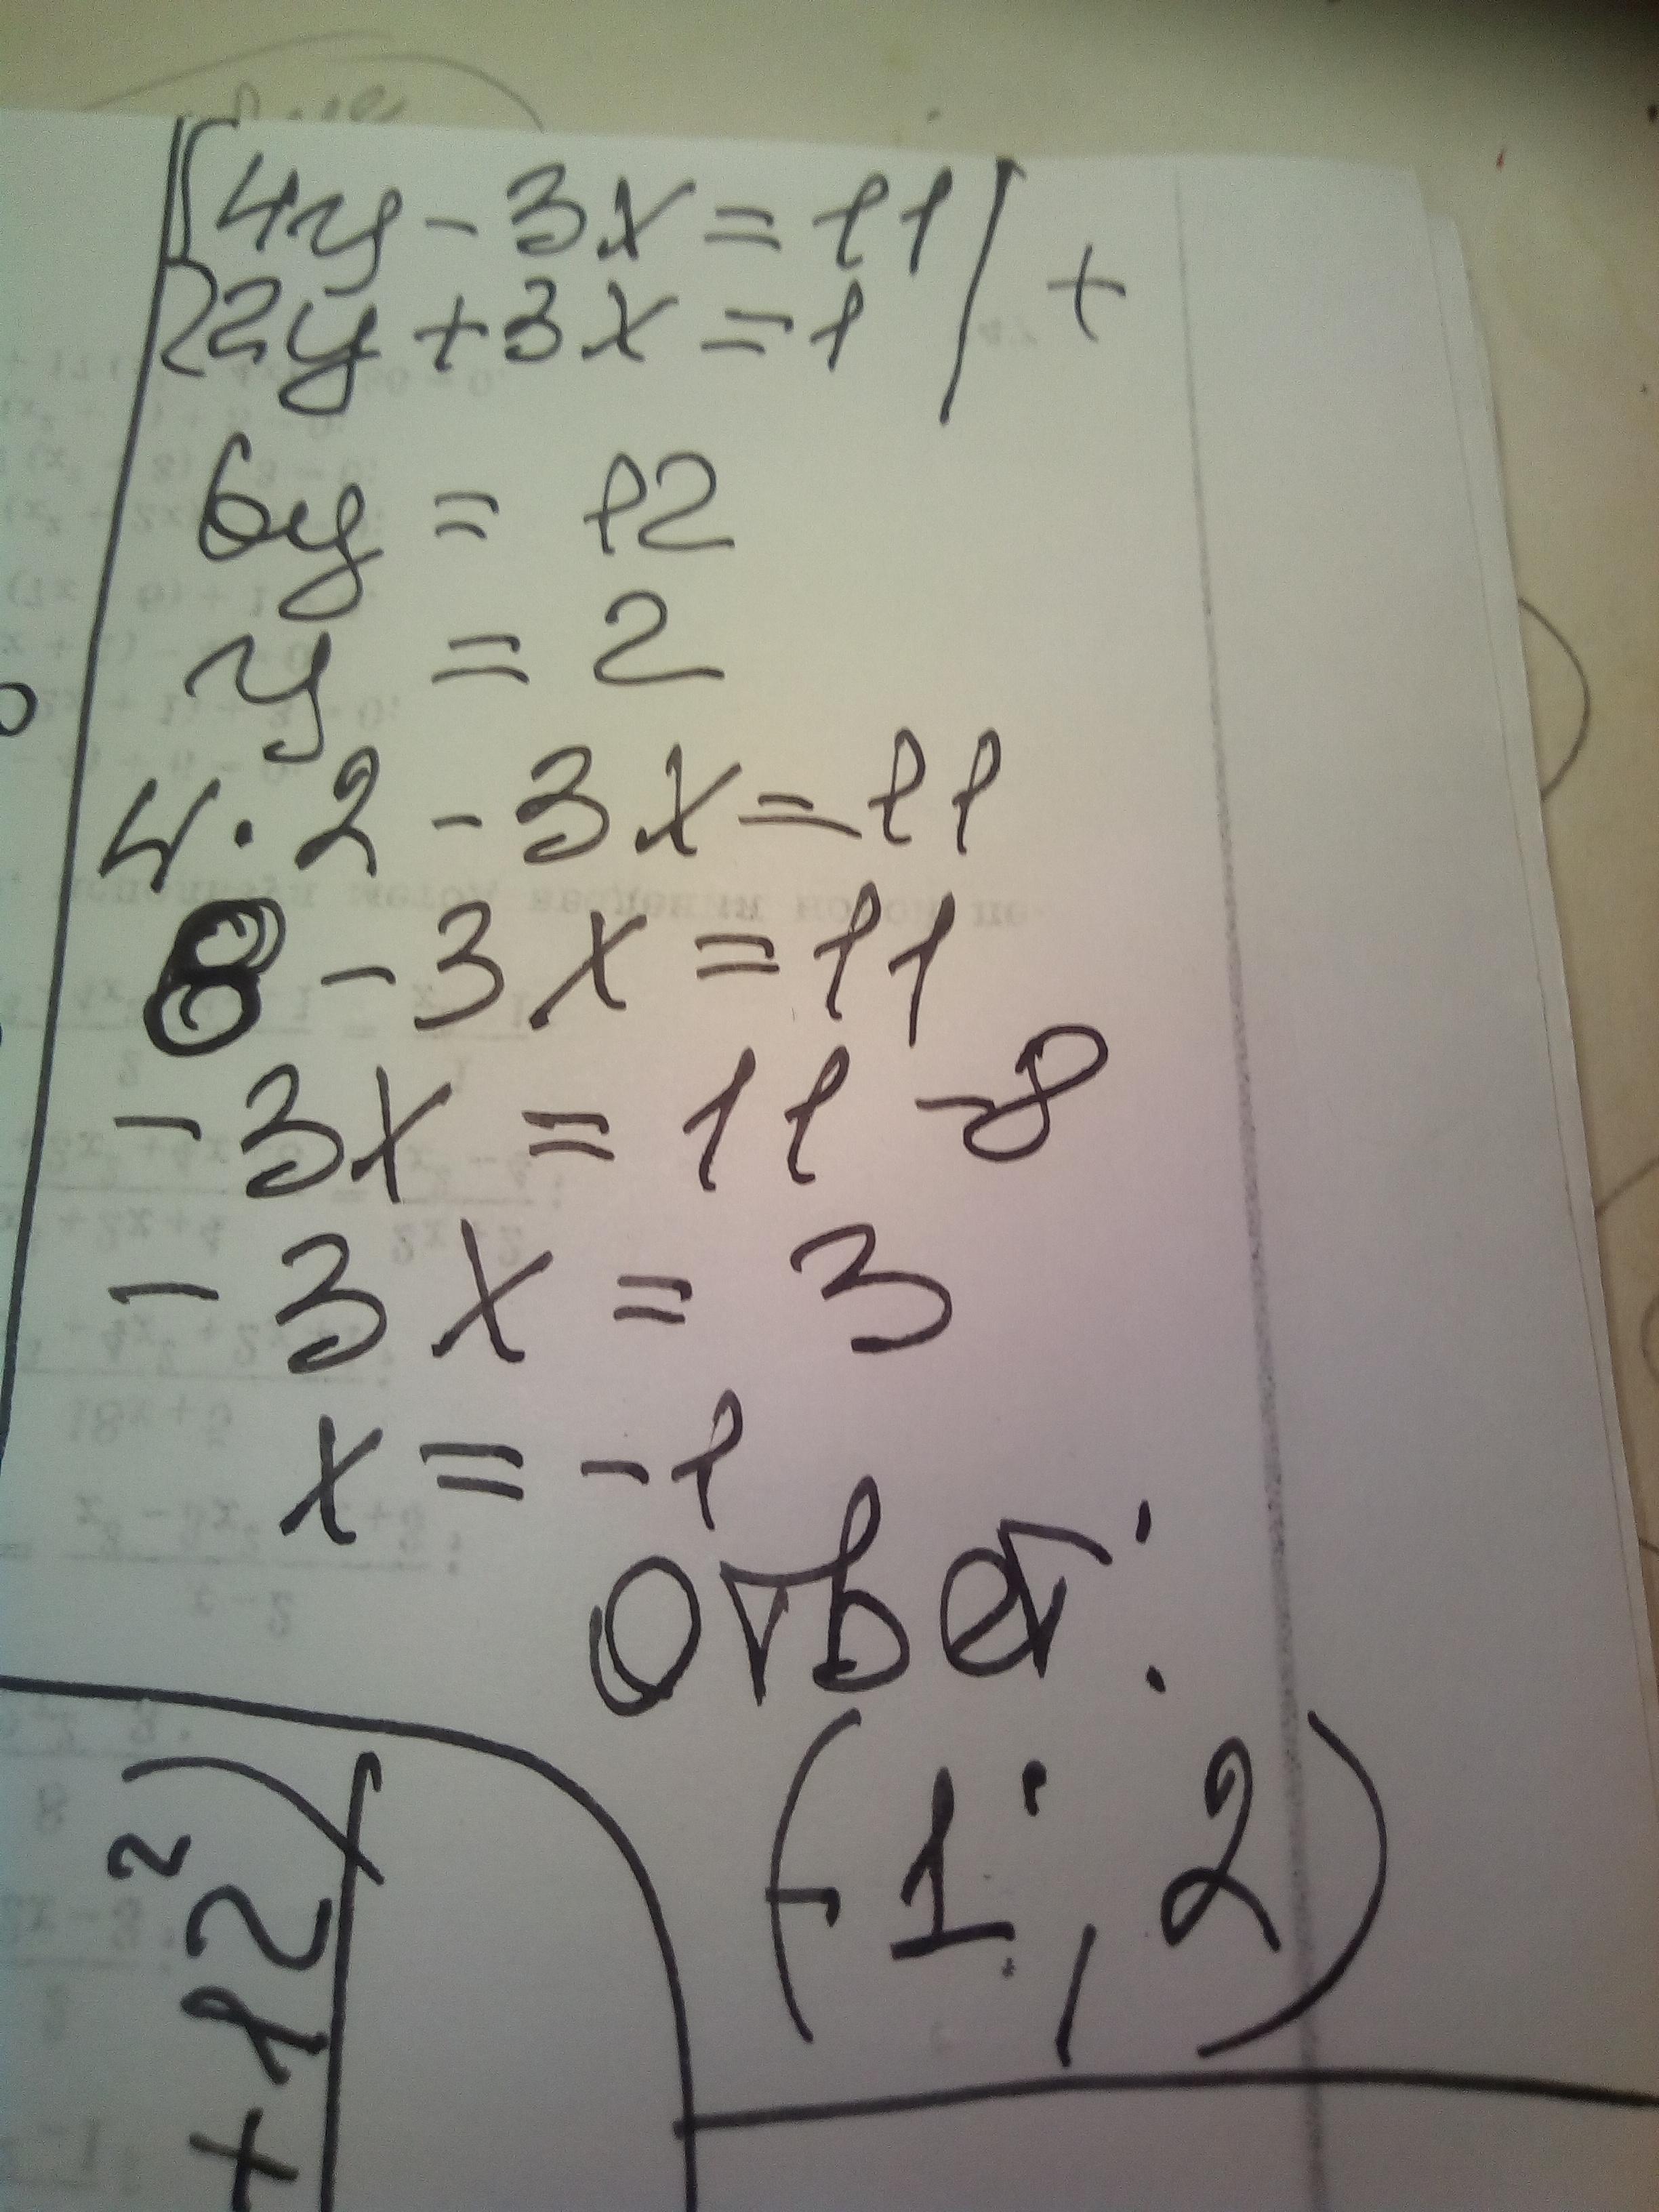 4y - 3x = 11 | +
2y + 3x = 1
6y = 12
y = 2
4 · 2 - 3x = 11
8 - 3x = 11
- 3x = 11 - 8
- 3x = 3
x = -1
Ответ:
(-1; 2)
+12²)